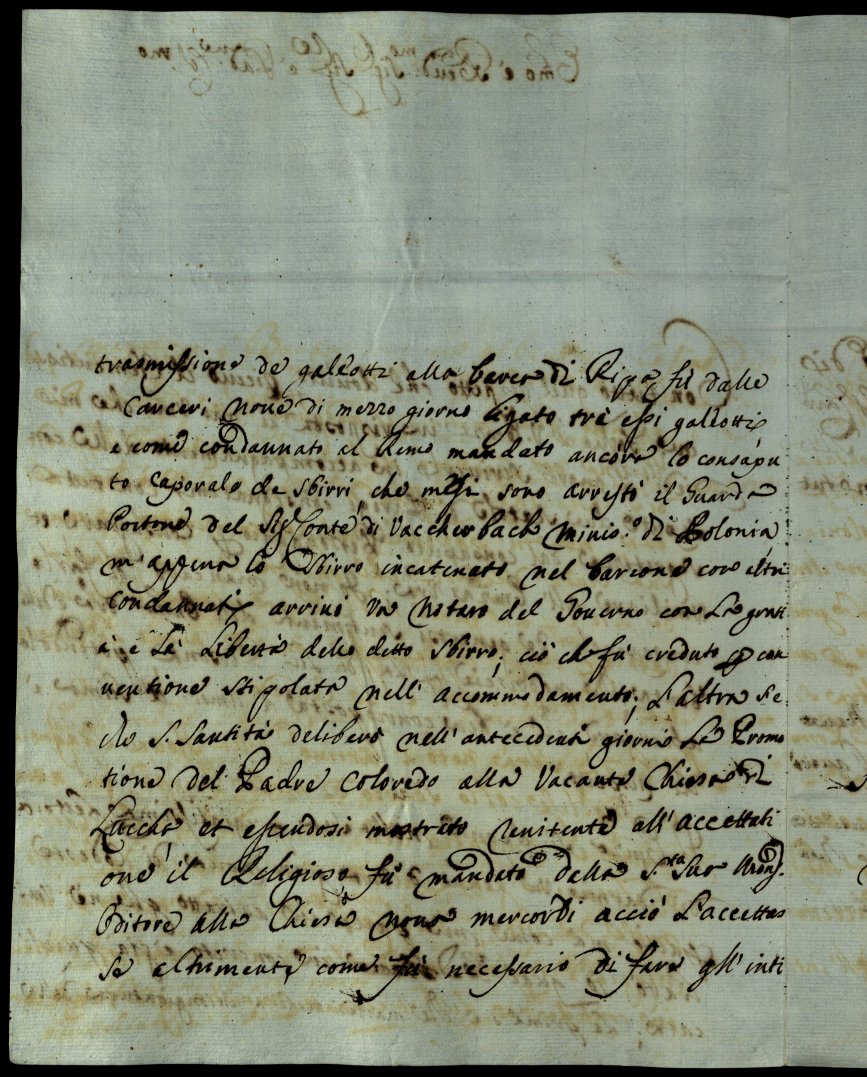 trasmissione de galeotti alla barca di Ripa fù dalle
Carceri nove di mezzo giorno ligato trà essi galeotti
e come condannato al Remo mandato ancora lo consapu
to Caporale de sbirri, che mesi sono arrestò il Guarda
Portone del Sig.r Conte di Vaccherbach Minis.o di Polonia,
m'appena lo Sbirro incatenato nel barcone con altri
Condannati arrivò un Notaro del Governo con la
è la Libertà dello detto sbirro, ciò che fù creduto con
ventione stipolata nell'accommodamento; L'altra se
che S. Santità deliberò nell'antecedenti giorni la Promo
tione del Padre Coloredo alla Vacante Chiesa di
Lucca et essendosi mostrato renitente all'accettati
one il Religioso fù mandato dalla S.tà Sua Mons.
Ditore alla Chiesa nova mercordì acciò l'accettas
se altrimente come fù necessario di fare gl'inti